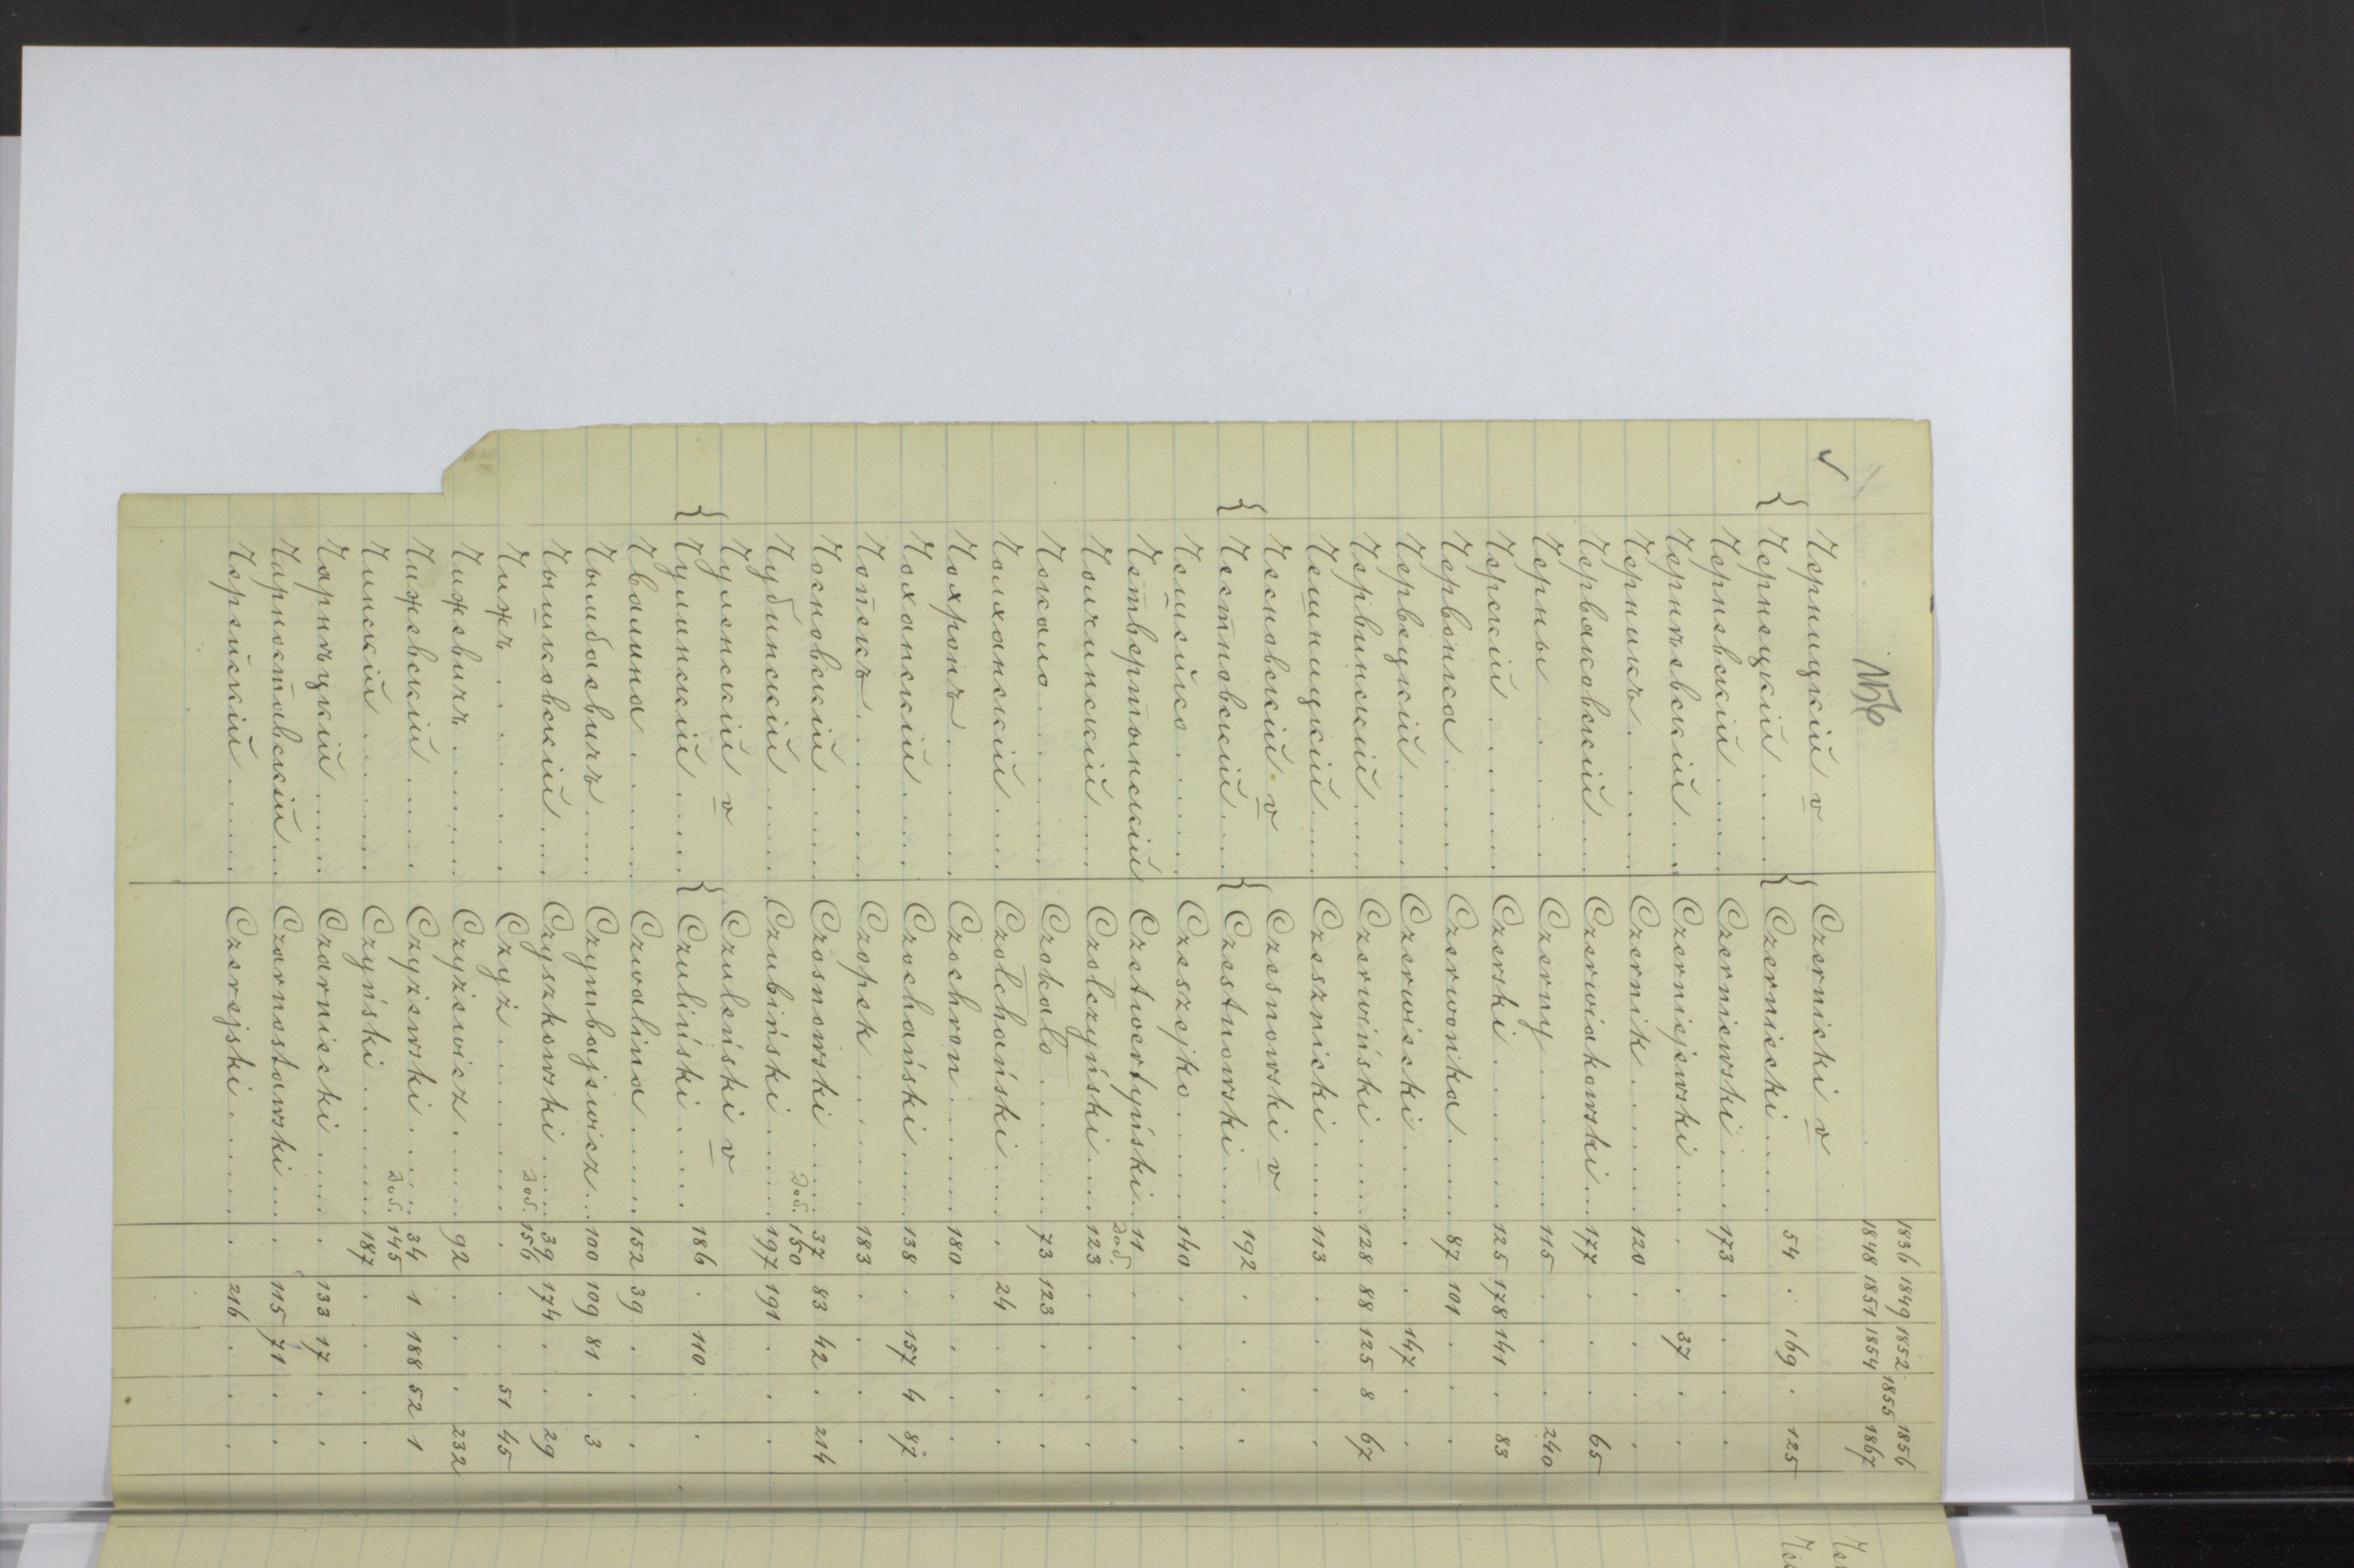 1836 1849 1852 1855 1856
1848 1851 1854 1867
Черницкій v Czernicki v
Чернецкій Czerniecki 54 . 169 . 125
Черневскій Czerniewski 173 . . . .
Чернѣевскій Czerniejewski . . 37 . .
Черникъ Czernik 120 . . . .
Черваковскій Czerwiakowski 177 . . . 65
Черны Czerny 115 . . . 240
Черскій Czerski 125 178 141 . 83
Червонка Czerwonka 87 101 . . .
Червецкій Czerwiecki . . 147 . .
Червинскій Czerwiński 128 88 125 8 67
Чешницкій Czesznicki 113 . . . .
Чесновскій v Czesnowski v
Честновскій Czestnowski 192 . . . .
Чешейко Czeszejko 140 . . . .
Четвертынскій Czetwertyński 11 . . . .
Дод.
Чолчинскій Czołczyński 123 . . . .
Чокало Czokało 73 123 . . .
Чолханскій Czołchański . 24 . . .
Чохронъ Czochron 180 . . . .
Чоханскій Czochański 138 . 157 4 87
Чопекъ Czopek 183 . . . .
Чосновскій Czosnowski 37 83 42 . 214
Дод. 150
Чубинскій Czubiński 197 191 . . .
Чуленскій v Czuleński v
Чулинскій Czuliński 186 . 110 . .
Чвалина Czwalina 152 39 . . .
Чымбаевичъ Czymbajewicz 100 109 81 . 3
Чышковскій Czyszkowski 39 174 . . 29
Дод. 156
Чижъ Czyż . . . 51 45
Чижевичъ Czyżewicz 92 . . . 232
Чижевскій Czyżewski 34 1 188 52 1
Дод. 145
Чинскій Czyński 187 . . . .
Чарнѣцкій Czarniecki . 133 17 . .
Чарноставскій Czarnostawski . 115 71 . .
Черейскій Czerejski . 216 . . .